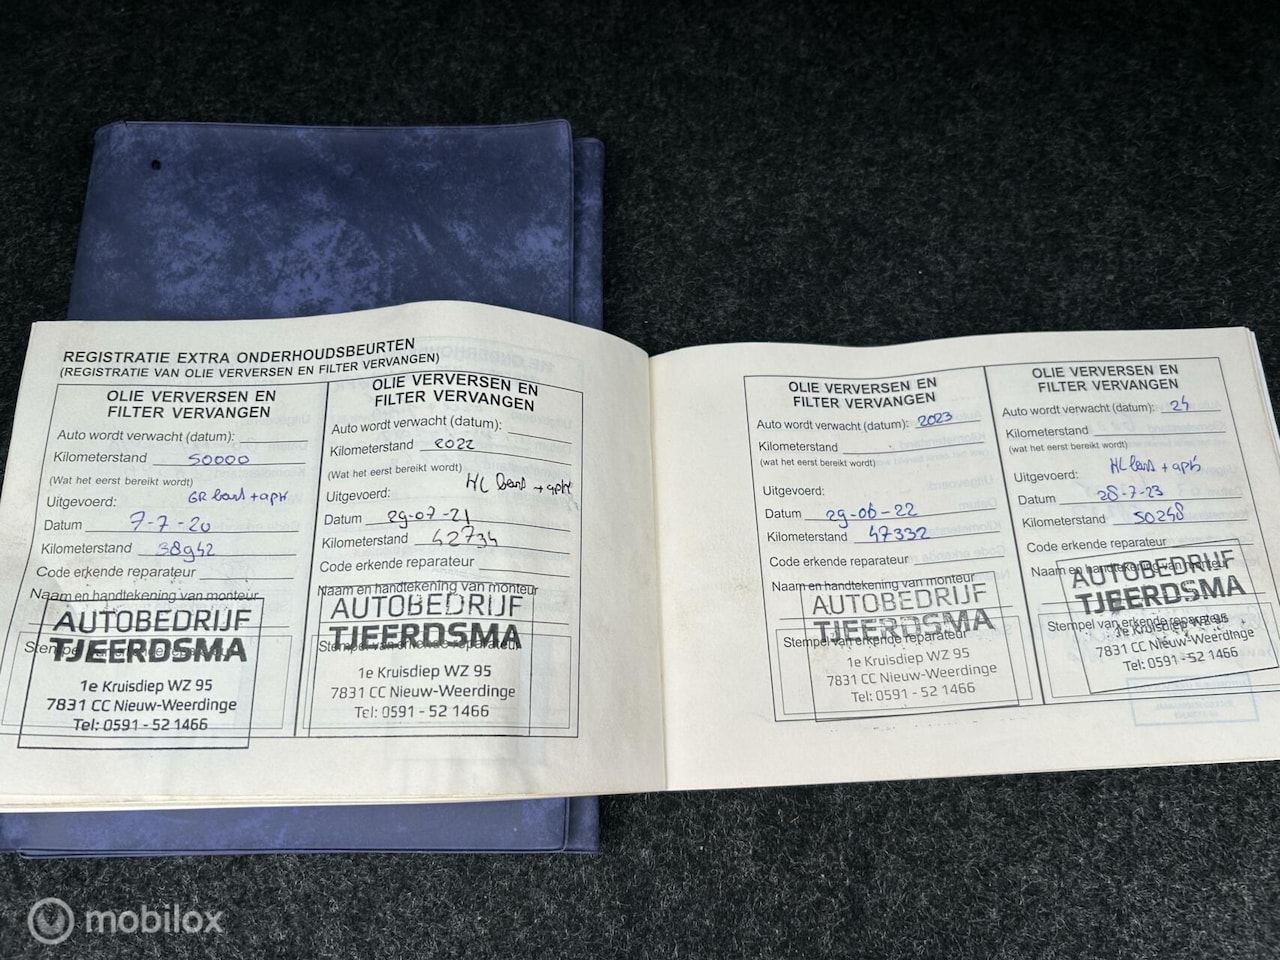 REGISTRATIE EXTRA ONDERHOUDSBEURTEN
(REGISTRATIE VAN OLIE VERVERSEN EN FILTER VERVANGEN)
OLIE VERVERSEN EN
FILTER VERVANGEN
Auto wordt verwacht (datum):
Kilometerstand 50000
(Wat het eerst bereikt wordt)
Uitgevoerd: GR beurt + apk
Datum 7-7-20
Kilometerstand 38942
Code erkende reparateur
Naam en handtekening van monteur
Stempel van erkende reparateur
AUTOBEDRIJF
TJEERDSMA
1e Kruisdiep WZ 95
7831 CC Nieuw-Weerdinge
Tel: 0591 - 52 1466
OLIE VERVERSEN EN
FILTER VERVANGEN
Auto wordt verwacht (datum):
Kilometerstand 2022
(Wat het eerst bereikt wordt)
Uitgevoerd: KL beurt + apk
Datum 29-07-21
Kilometerstand 42734
Code erkende reparateur
Naam en handtekening van monteur
Stempel van erkende reparateur
AUTOBEDRIJF
TJEERDSMA
1e Kruisdiep WZ 95
7831 CC Nieuw-Weerdinge
Tel: 0591 - 52 1466
OLIE VERVERSEN EN
FILTER VERVANGEN
Auto wordt verwacht (datum): 2023
Kilometerstand
(wat het eerst bereikt wordt)
Uitgevoerd:
Datum 29-06-22
Kilometerstand 47332
Code erkende reparateur
Naam en handtekening van monteur
Stempel van erkende reparateur
AUTOBEDRIJF
TJEERDSMA
1e Kruisdiep WZ 95
7831 CC Nieuw-Weerdinge
Tel: 0591 - 52 1466
OLIE VERVERSEN EN
FILTER VERVANGEN
Auto wordt verwacht (datum): 24
Kilometerstand
(wat het eerst bereikt wordt)
Uitgevoerd: KL beurt + apk
Datum 28-7-23
Kilometerstand 50248
Code erkende reparateur
Naam en handtekening van monteur
Stempel van erkende reparateur
AUTOBEDRIJF
TJEERDSMA
1e Kruisdiep WZ 95
7831 CC Nieuw-Weerdinge
Tel: 0591 - 52 1466
mobilox